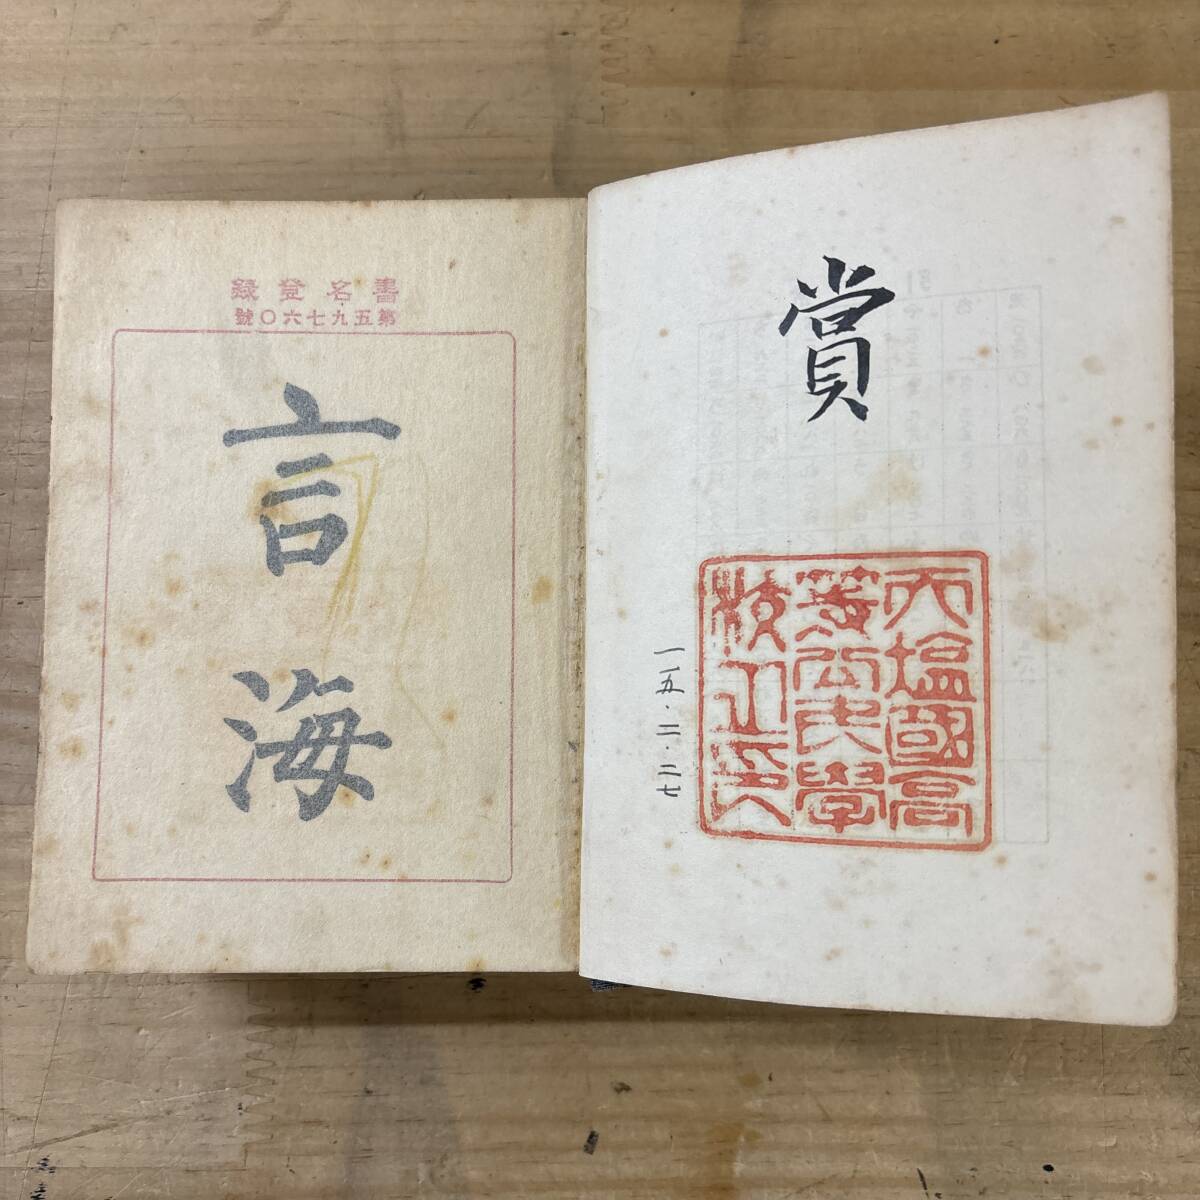 書名登録
第五九七六〇號
言海
賞
大塩國高
等公民學
校之印
一五・二・二七